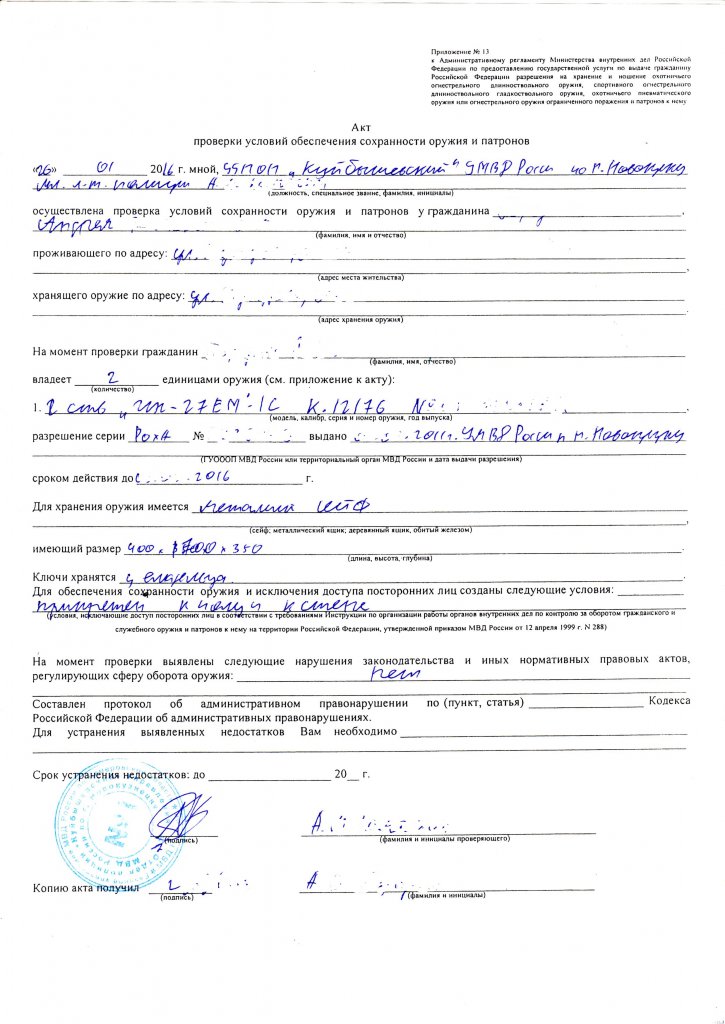 Приложение № 13
к Административному регламенту Министерства внутренних дел Российской
Федерации по предоставлению государственной услуги по выдаче гражданину
Российской Федерации разрешения на хранение и ношение охотничьего
огнестрельного длинноствольного оружия, спортивного огнестрельного
длинноствольного гладкоствольного оружия, охотничьего пневматического
оружия или огнестрельного оружия ограниченного поражения и патронов к нему
Акт
проверки условий обеспечения сохранности оружия и патронов
«26» 01 2016 г. мной, УУП ОП "Куйбышевский" УМВД России по г. Новокузнецку
мл. л-т. полиции А
(должность, специальное звание, фамилия, инициалы)
осуществлена проверка условий сохранности оружия и патронов у гражданина
Андрея
(фамилия, имя и отчество)
проживающего по адресу: ул.
(адрес места жительства)
хранящего оружие по адресу: ул.
(адрес хранения оружия)
На момент проверки гражданин
(фамилия, имя, отчество)
владеет 2 единицами оружия (см. приложение к акту):
(количество)
1. 2 ств ИЖ-27ЕМ-1С К.12/76 №
(модель, калибр, серия и номер оружия, год выпуска)
разрешение серии РОХА № выдано 2011г. УМВД России по г. Новокузнецку
(ГУОООП МВД России или территориальный орган МВД России и дата выдачи разрешения)
сроком действия до 2016 г.
Для хранения оружия имеется металлич сейф
(сейф; металлический ящик; деревянный ящик, обитый железом)
имеющий размер 400 x 1700 x 350
(длина, высота, глубина)
Ключи хранятся у владельца
Для обеспечения сохранности оружия и исключения доступа посторонних лиц созданы следующие условия:
прикручен к полу и к стене
(условия, исключающие доступ посторонних лиц в соответствии с требованиями Инструкции по организации работы органов внутренних дел по контролю за оборотом гражданского и
служебного оружия и патронов к нему на территории Российской Федерации, утвержденной приказом МВД России от 12 апреля 1999 г. N 288)
На момент проверки выявлены следующие нарушения законодательства и иных нормативных правовых актов,
регулирующих сферу оборота оружия: нет
Составлен протокол об административном правонарушении по (пункт, статья) Кодекса
Российской Федерации об административных правонарушениях.
Для устранения выявленных недостатков Вам необходимо
Срок устранения недостатков: до 20 г.
А.
(подпись) (фамилия и инициалы проверяющего)
Копию акта получил А
(подпись) (фамилия и инициалы)